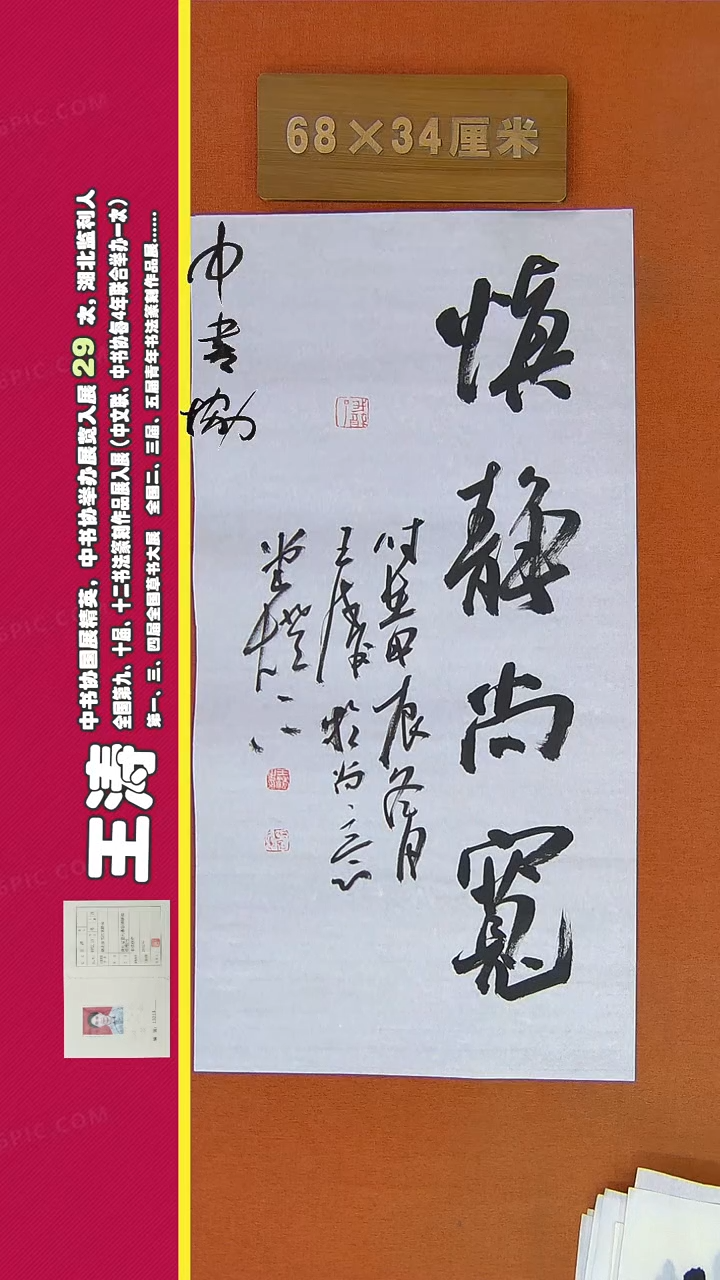 68×34厘米
慎静尚寬
甲辰冬月
王涛 於尚意
堂燈下
中书协
王涛
中书协国展精英，中书协举办展览入展 29 次，湖北监利人
全国第九、十届、十二书法篆刻作品展入展（中文联、中书协每4年联合举办一次）
第一、三、四届全国草书大展 全国二、三届、五届青年书法篆刻作品展……